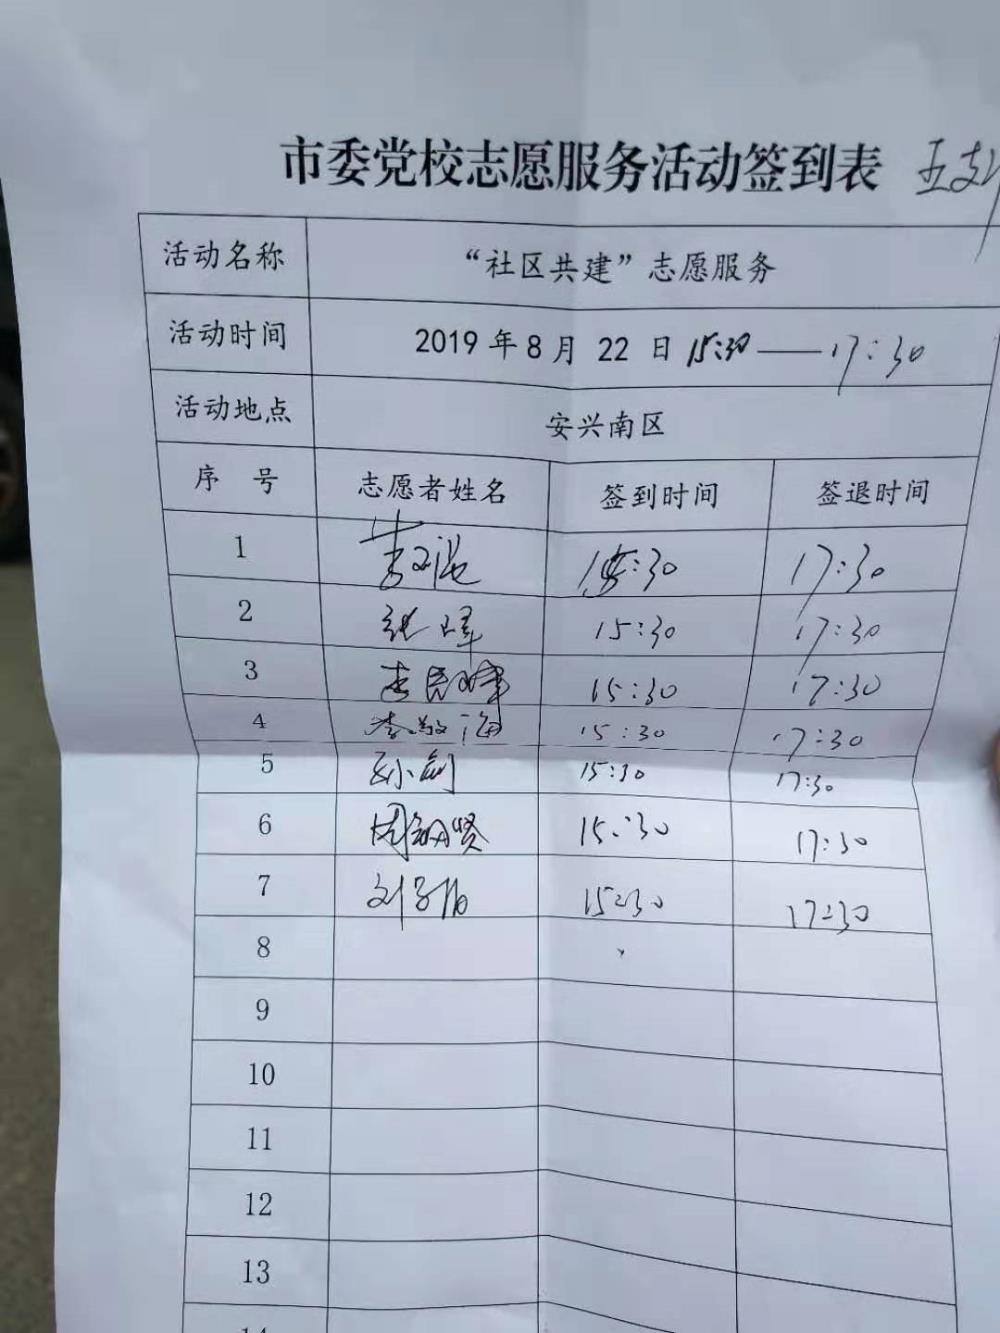 市委党校志愿服务活动签到表 五支
活动名称 “社区共建”志愿服务
活动时间 2019年8月 22 日 15:30——17:30
活动地点 安兴南区
序 号 志愿者姓名 签到时间 签退时间
1 15:30 17:30
2 张 15:30 17:30
3 李 15:30 17:30
4 李敬海 15:30 17:30
5 孙剑 15:30 17:30
6 周 贤 15:30 17:30
7 刘子 15:30 17:30
8
9
10
11
12
13
14